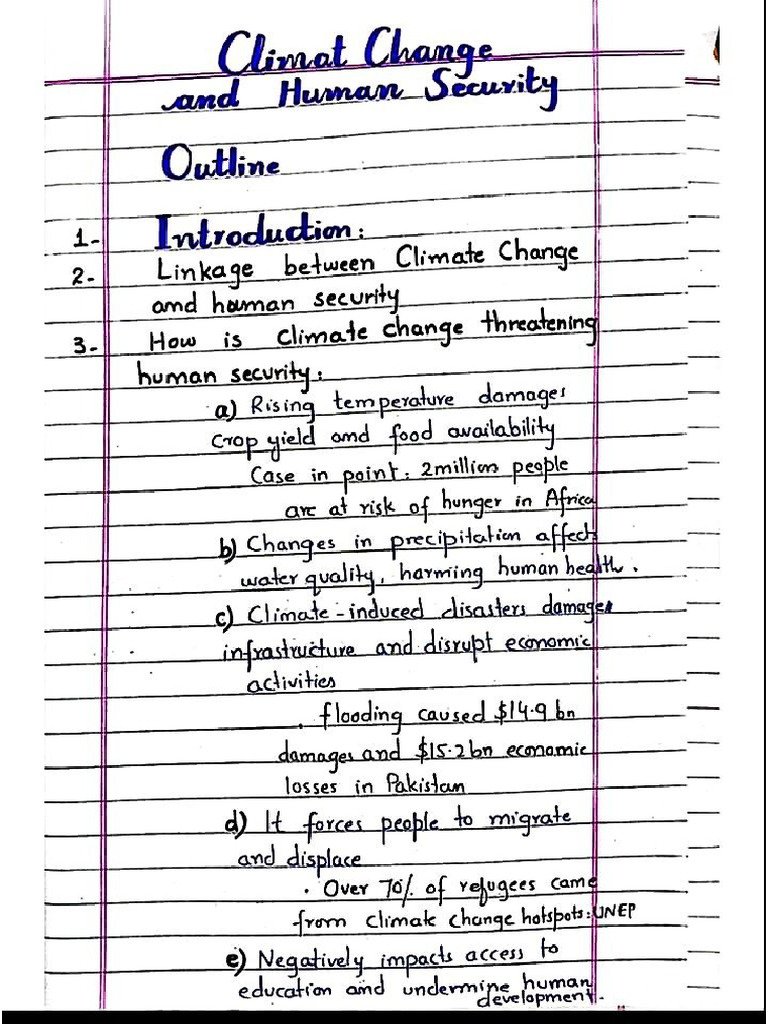 Climat Change
and Human Security
Outline
1- Introduction:
2- Linkage between Climate Change
and human security
3- How is climate change threatening
human security:
a) Rising temperature damages
crop yield and food availability
Case in point: 2million people
are at risk of hunger in Africa
b) Changes in precipitation affects
water quality, harming human health.
c) Climate-induced disasters damages
infrastructure and disrupt economic
activities
. flooding caused $14.9 bn
damages and $15.2bn economic
losses in Pakistan
d) It forces people to migrate
and displace
. Over 70% of refugees came
from climate change hotspots: UNEP
e) Negatively impacts access to
education and undermine human
development.